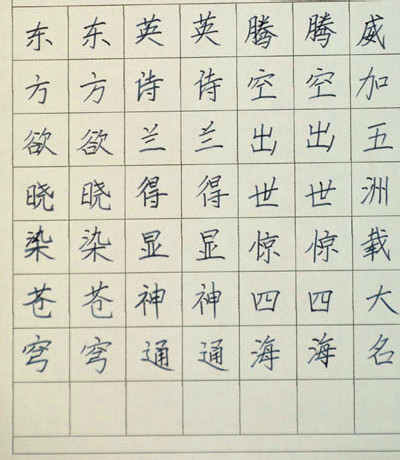 东方欲晓染苍穹
东方欲晓染苍穹
英诗兰得显神通
英诗兰得显神通
腾空出世惊四海
腾空出世惊四海
威加五洲载大名